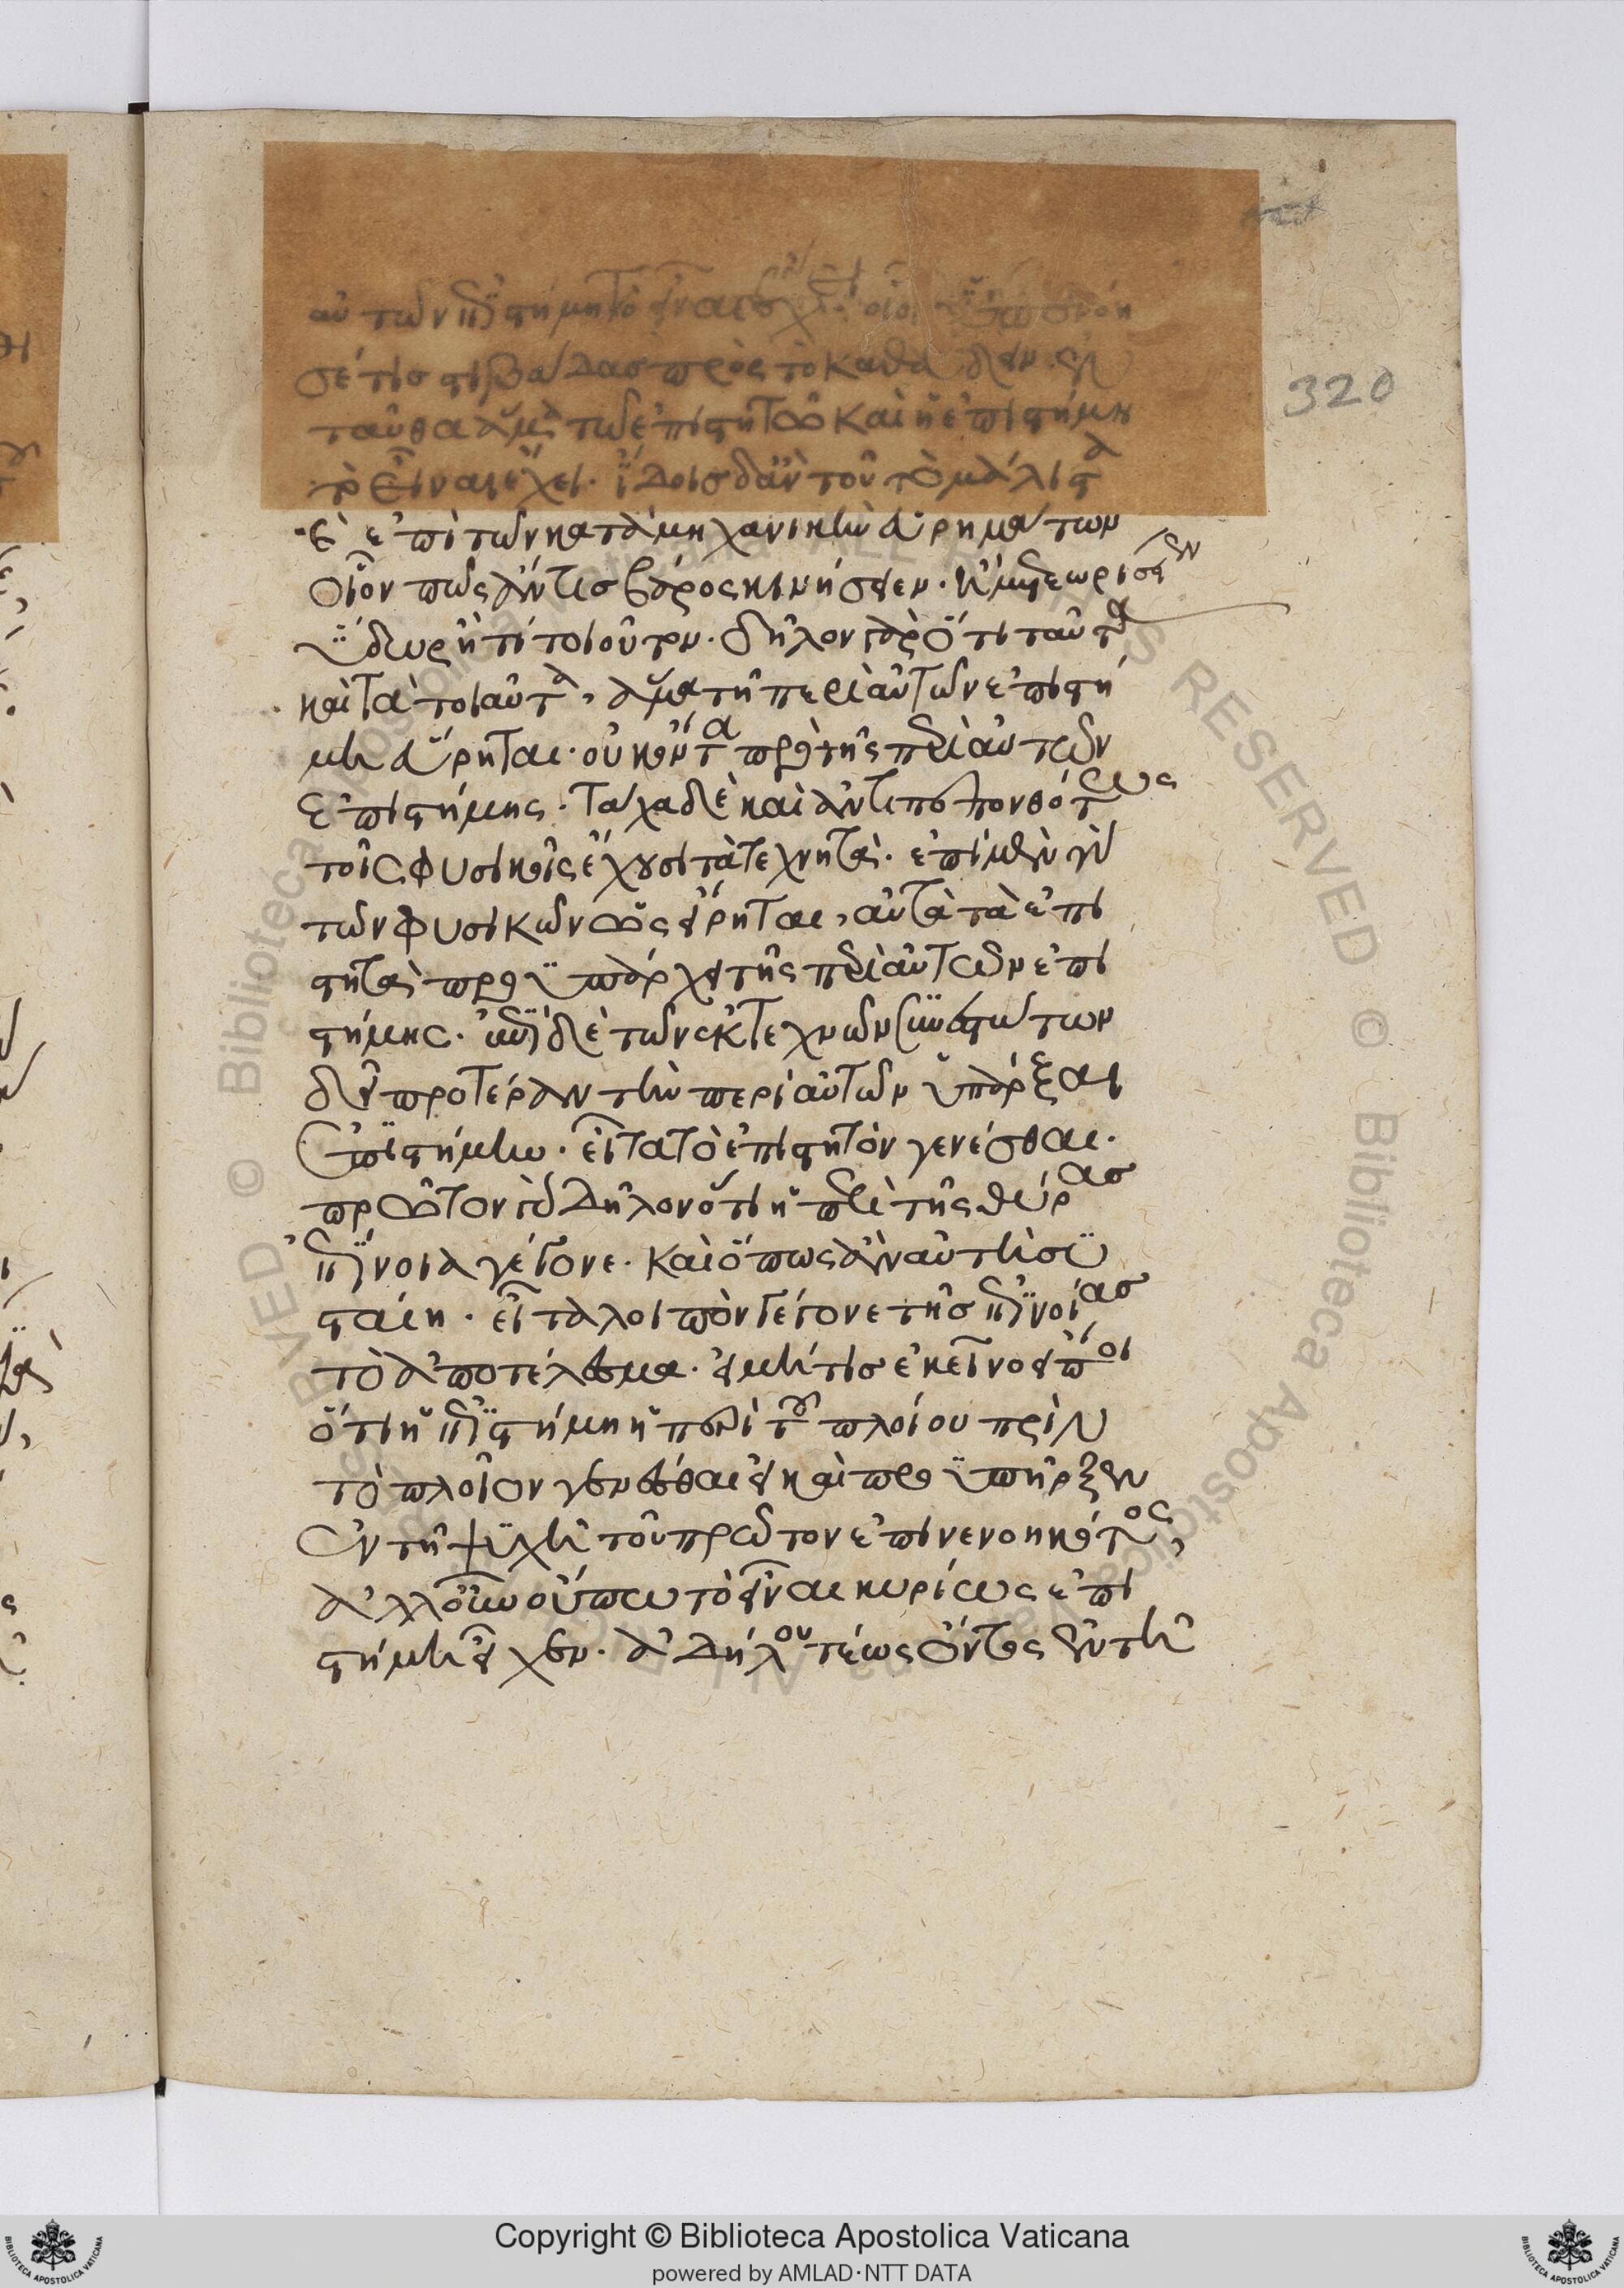 αὐτῶν ἐπιστήμη τὸ εἶναι
σέ τις στιβάδας πρὸς τὸ καθεύδειν· ἐν
ταῦθα ἅμα τῷ ἐπιστητῷ καὶ ἡ ἐπιστήμη
τὸ εἶναι ἔχει· ἴδοις δ' ἂν τοῦτο μάλιστα
ἐπὶ τῶν κατὰ μηχανικὴν εὑρημάτων
οἷον πῶς ἄν τις βάρος κινήσειεν·
ὕδωρ ἤ τι τοιοῦτον· δῆλον γὰρ ὅτι ταῦτα
καὶ τὰ τοιαῦτα, ἅμα τῇ περὶ αὐτῶν ἐπιστή
μη εὕρηται· οὐκ ὄντα πρὸ τῆς περὶ αὐτῶν
ἐπιστήμης· τάχα δὲ καὶ ἀντιπεπονθότως
τοῖς φυσικοῖς ἔχουσι τὰ τεχνητά· ἐπὶ μὲν γὰρ
τῶν φυσικῶν ὡς εἴρηται, αὐτὰ τὰ ἐπι
στητὰ προϋπάρχει τῆς περὶ αὐτῶν ἐπι
στήμης· ἐπὶ δὲ τῶν ἐκ τεχνῶν συστάντων
δεῖ προτέραν τὴν περὶ αὐτῶν ὑπάρξαι
ἐπιστήμην· εἶτα τὸ ἐπιστητὸν γενέσθαι·
πρῶτον γὰρ δηλονότι ἡ περὶ τῆς θύρας
ἐπίνοια γέγονε· καὶ ὅπως ἂν αὐτὴ συ
σταίη· εἶτα λοιπὸν γέγονε τῆς ἐπινοίας
τὸ ἀποτέλεσμα· εἰ μή τις ἐκεῖνο εἴποι
ὅτι ἡ ἐπιστήμη ἡ περὶ τοῦ πλοίου πρὶν
τὸ πλοῖον γενέσθαι εἰ καὶ προϋπῆρξεν
ἐν τῇ ψυχῇ τοῦ πρώτον ἐπινενοηκότος,
ἀλλ' οὖν οὔπω τὸ εἶναι κυρίως ἐπι
στήμη εἶχεν· ἀδήλου τέως ὄντος ἐν τῇ
320